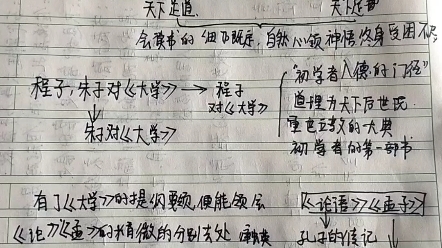 天下之道
会读书的细下既定,自然心领神悟终身受用不尽
程子,朱子对《大学》→ 程子对《大学》
"初学者入德的门径"
道理为天下后世现
垂世立教的大典
初学者的第一部书
朱子对《大学》
有了《大学》的提纲要领,便能领会
《论》《孟》的精微的分别去处
《论语》《孟子》
孔子的传记